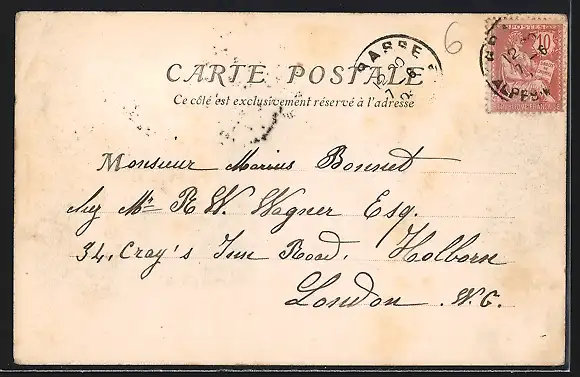 6
POSTES
10
RÉPUBLIQUE FRANÇAISE
GRASSE
12 20
7
CARTE POSTALE
Ce côté est exclusivement réservé à l'adresse
Monsieur Marius Bonnet
chez Mr R. W. Wagner Esq.
34, Gray's Inn Road, Holborn
London W.C.